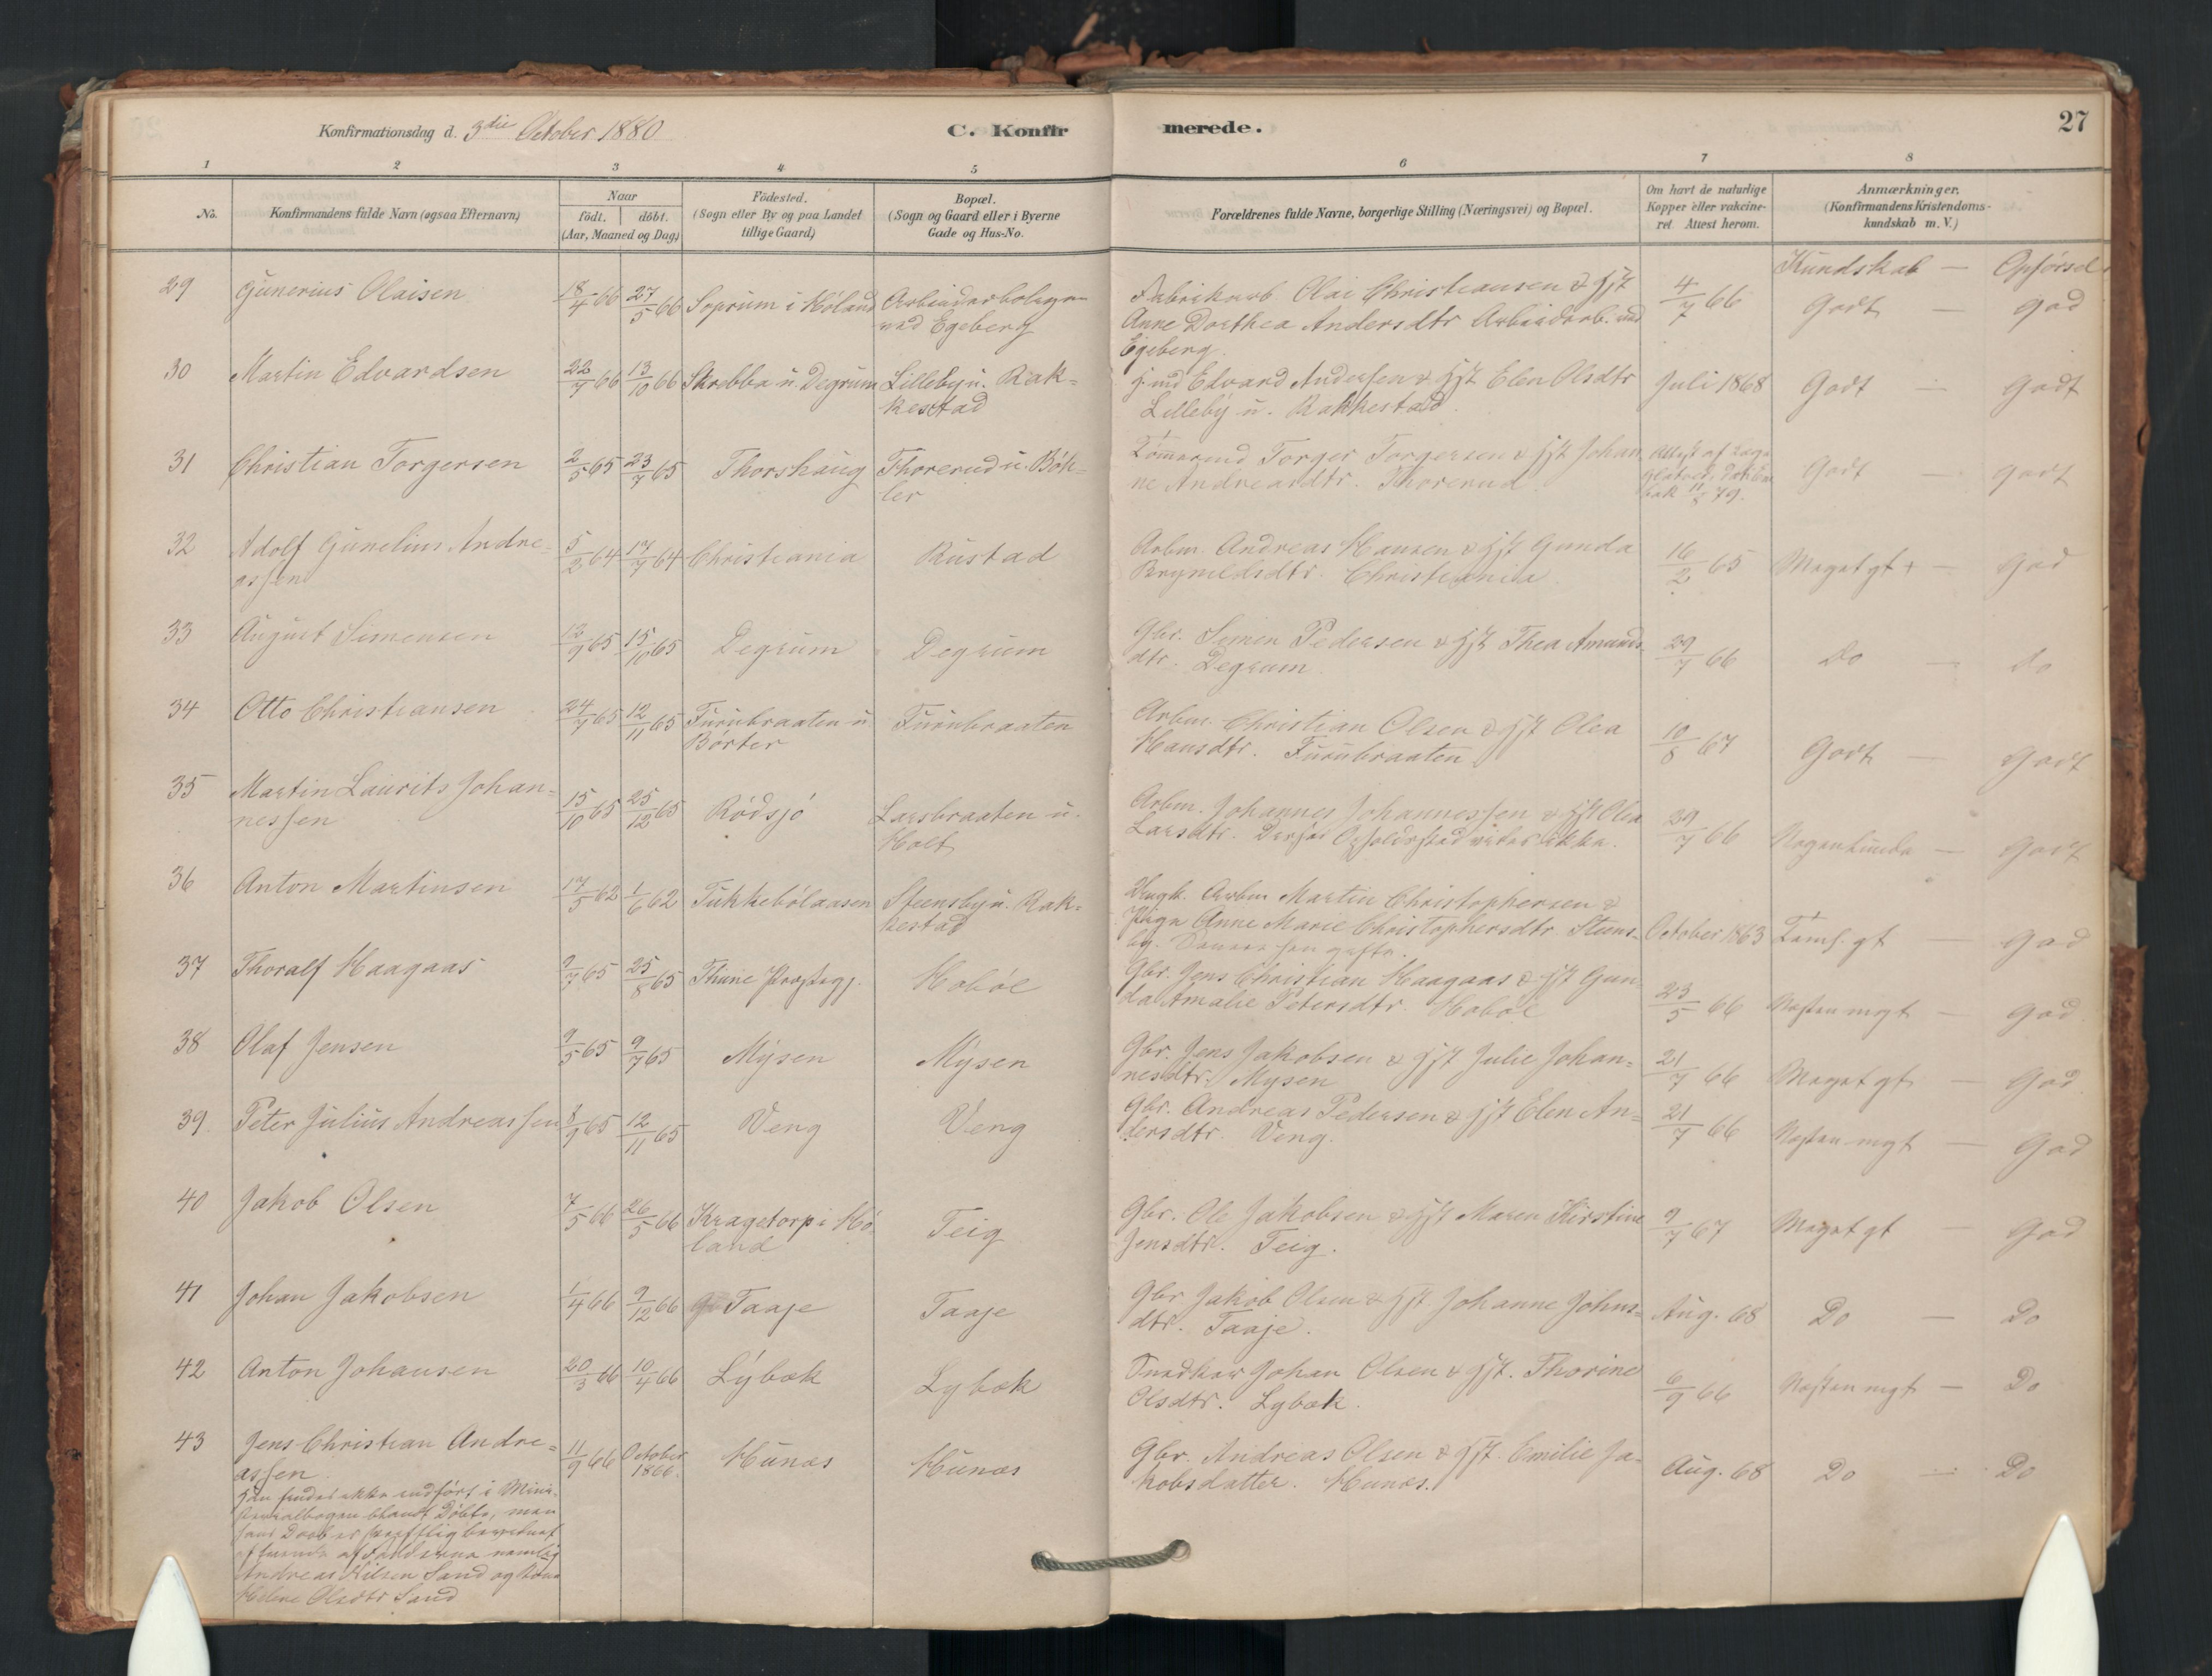 Konfirmationsdag d. 3die October 1880
C. Konfirmerede.
27
1 2 3 4 5 6 7 8
No.
Konfirmandens fulde Navn (ogsaa Efternavn)
Naar
födt. döbt.
(Aar, Maaned og Dag)
Födested.
(Sogn eller By og paa Landet
tillige Gaard)
Bopæl.
(Sogn og Gaard eller i Byerne
Gade og Hus-No.
Forældrenes fulde Navne, borgerlige Stilling (Næringsvei) og Bopæl.
Om havt de naturlige
Kopper eller vakcine-
ret. Attest herom.
Anmærkninger.
(Konfirmandens Kristendoms-
kundskab m. V.)
Kundskab — Opførsel
29 Gunerius Olaisen 18/4 66 27/5 66 Soprum i Høland Arbeiderbolagen
ved Egeberg
Fabrikarb Olai Christiansen & Hst
Anne Dorthea Andersdtr Arbeiderb. ved
Egeberg.
4/7 66 Godt — God
30 Martin Edvardsen 22/7 66 13/10 66 Skrebba u. Degrum Lilleby u. Rak-
kestad
Hmd Edvard Andersen & Hst Elen Olsdtr
Lilleby u. Rakkestad.
Juli 1868 Godt — Godt
31 Christian Torgersen 2/5 65 23/7 65 Thorshaug Thorerud u. Böh-
ler
Tömmermd Torger Torgersen & Hst Johan
ne Andreasdtr. Thorerud.
Attest af
11/8 79.
Godt — godt
32 Adolf Gunelius Andre-
assen
5/2 64 17/7 64 Christiania Rustad
Arbm. Andreas Hansen & Hst Gunda
Brynildsdtr. Christiania.
16/2 65 Meget gt + — God
33 August Simensen 12/9 65 15/10 65 Degrum Degrum
Gbr. Simen Pedersen & Hst Thea Amunds
dtr. Degrum.
29/7 66 Do — Do
34 Otto Christiansen 24/7 65 12/11 65 Furubraaten u
Börter
Furubraaten
Arbm. Christian Olsen & Hst Olea
Hansdtr. Furubraaten
10/8 67 Godt — Godt
35 Martin Laurits Johan-
nessen
15/10 65 25/12 65 Rödsjö Larsbraaten u.
Holt
Arbm. Johannes Johannessen & Hst Olea
Larsdtr. Deres Opholdsted vides ikke.
29/7 66 Nogenlunde — Godt
36 Anton Martinsen 17/5 62 1/6 62 Tukkebölaasen Steensby u. Rak-
kestad
Ungk. Arbm Martin Christophersen &
Pige Anne Marie Christophersdtr. Steens-
by. gifte.
October 1863 Teml. gt — God
37 Thoralf Haagaas 9/7 65 25/8 65 Thune Præstegj. Hoböl
Gbr. Jens Christian Haagaas & Hst Gun-
da Amalie Petersdtr. Hoböl
23/5 66 Næsten mgt — God
38 Olaf Jensen 9/5 65 9/7 65 Mysen Mysen
Gbr. Jens Jakobsen & Hst Julie Johan-
nesdtr. Mysen
21/7 66 Meget gt — God
39 Peter Julius Andreassen 8/9 65 12/11 65 Veng Veng
Gbr. Andreas Pedersen & Hst Elen An-
dersdtr. Veng.
21/7 66 Næsten mgt — God
40 Jakob Olsen 7/5 66 26/5 66 Kragetorp i Hö-
land
Teig
Gbr. Ole Jakobsen & Hst Maren Kirstine
Jensdtr. Teig.
9/7 67 Meget gt — God
41 Johan Jakobsen 1/4 66 9/12 66 Taaje Taaje
Gbr Jakob Olsen & Hst. Johanne Johns-
dtr. Taaje.
Aug. 68 Do — Do
42 Anton Johansen 20/3 66 10/4 66 Lybæk Lybæk
Snedker Johan Olsen & Hst. Thorine
Olsdtr. Lybæk.
6/9 66 Næsten mgt — Do
43 Jens Christian Andre-
assen.
11/9 66 October
1866.
Hunæs Hunæs
Gbr. Andreas Olsen & Hst. Emilie Ja-
kobsdatter. Hunæs.
Aug. 68 Do — Do
Han findes ikke indført i Mini-
sterialbogen blandt Döbte, men
hans Daab er skriftlig bevidnet
af tvende af Fadderne nemlig
Andreas Nilsen Sand og
Helene Olsdtr Sand